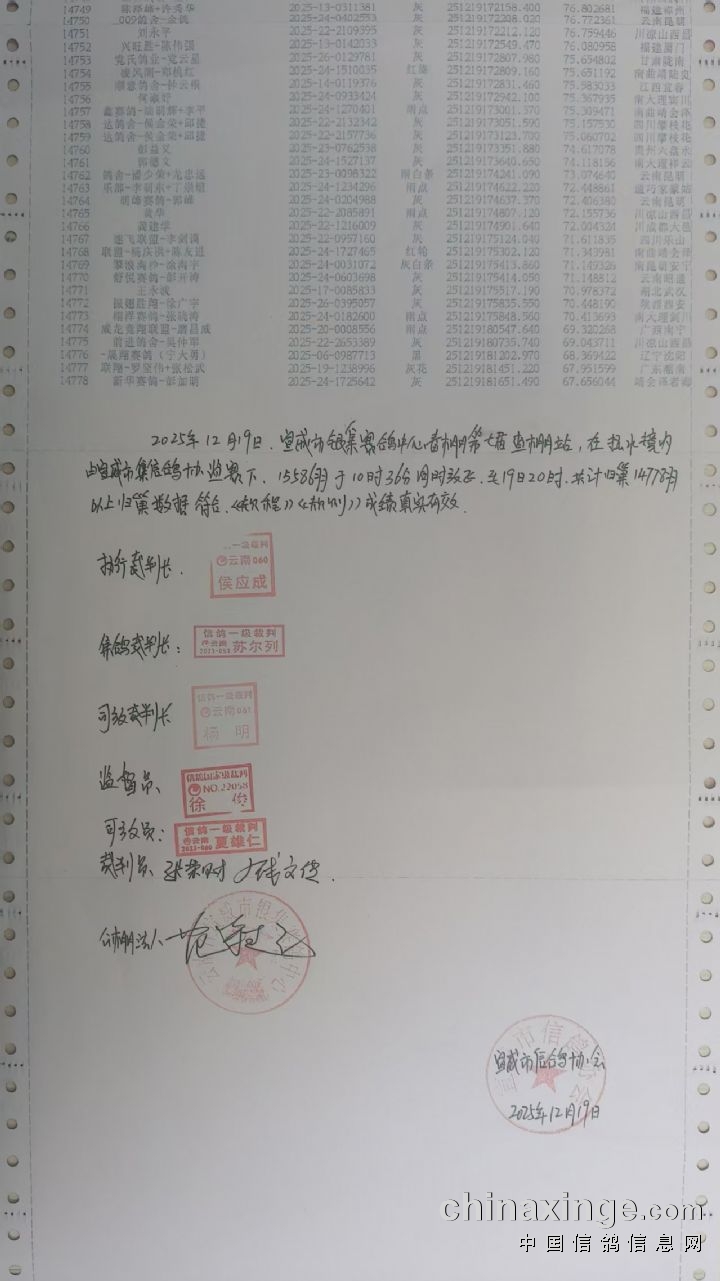 14749 陈泽雄-许秀华 2025-13-0311381 灰 251219172158.400 76.802681 福建福州
14750 009鸽舍-金锐 2025-24-0402553 灰 251219172208.020 76.772361 云南昆明
14751 刘永平 2025-22-2109395 灰 251219172212.120 76.759446 川凉山西昌
14752 兴旺胜-陈伟强 2025-13-0142033 灰 251219172549.470 76.080958 福建厦门
14753 党氏鸽业-党云星 2025-26-0129781 灰 251219172807.980 75.654802 甘肃陇南
14754 2025-24-1510035 红绛 251219172809.160 75.651192
14755 2025-14-0119376 灰 251219172831.460 75.583033 江西宜春
14756 2025-24-0933424 灰 251219172942.100 75.367935
14757 2025-24-1270401 雨点 251219173001.370 75.309471
14758 达鸽舍-侯会荣+邱捷 2025-22-2132342 灰 251219173051.590 75.157530 四川攀枝花
14759 达鸽舍-侯会荣+邱捷 2025-22-2157736 灰 251219173123.700 75.060702 四川攀枝花
14760 彭益义 2025-23-0762538 灰 251219173351.880 74.617078 贵州六盘水
14761 郭德文 2025-24-1527137 灰 251219173640.650 74.118156 南大理祥云
14762 鸽舍-潘少荣+龙忠远 2025-23-0098322 雨白条 251219174241.090 73.074640 云南昆明
14763 乐部-李朝东+丁崇煊 2025-24-1234296 雨点 251219174622.220 72.448861
14764 明峰赛鸽-郭峰 2025-24-0204988 灰 251219174637.370 72.406380 云南昆明
14765 黄华 2025-22-2085891 雨点 251219174807.120 72.155736 川凉山西昌
14766 龚建学 2025-22-1216009 灰 251219174901.640 72.004324 川成都大邑
14767 速飞联盟-李剑波 2025-22-0957160 灰 251219175124.040 71.611835 四川乐山
14768 联盟-杨庆洪+陈友进 2025-24-1727465 红轮 251219175302.120 71.343981 南曲靖会泽
14769 2025-24-0031072 灰白条 251219175413.860 71.149326 南昆明安宁
14770 舒悦赛鸽-彭开涛 2025-24-0603698 灰 251219175414.050 71.148812 云南昭通
14771 王永波 2025-17-0085833 灰 251219175517.190 70.978372 湖北武汉
14772 振翅胜翔-徐广宇 2025-26-0395057 灰 251219175835.550 70.448190 陕西西安
14773 翔祥赛鸽-张晓涛 2025-24-0182600 雨点 251219175848.560 70.413699 南大理剑川
14774 威龙竞翔联盟-唐昌威 2025-20-0008556 雨点 251219180547.640 69.320268 广西南宁
14775 前进鸽舍-吴仲军 2025-22-2653389 灰 251219180735.740 69.043711 川凉山西昌
14776 -晨翔赛鸽（宁大勇） 2025-06-0987713 黑 251219181202.970 68.369422 辽宁沈阳
14777 联翔-罗室伟+张松武 2025-19-1238996 灰花 251219181451.220 67.951599 广东雷南
14778 新华赛鸽-彭加明 2025-24-1725642 灰 251219181651.490 67.656044 靖会泽者海
2025年12月19日，宣威市银集赛鸽中心春棚第七届鱼棚站，在热水境内
由宣威市信鸽协会监赛下，15586羽于10时36分同时放飞，至19日20时，共计归巢14778羽
以上归巢数据符合《规程》《规则》成绩真实有效.
执行裁判长.
一级裁判
云南060
侯应成
集鸽裁判长：
信鸽一级裁判
云南
2021-058 苏尔列
司放裁判长
信鸽一级裁判
云南061
杨 明
监督员、
信鸽国家级裁判
NO.22058
徐 俊
司放员：
信鸽一级裁判
云南
2021-060 夏雄仁
裁判员、
公棚法人、
宣威市信鸽协会
2025年12月19日
chinaxinge.com
中国信鸽信息网